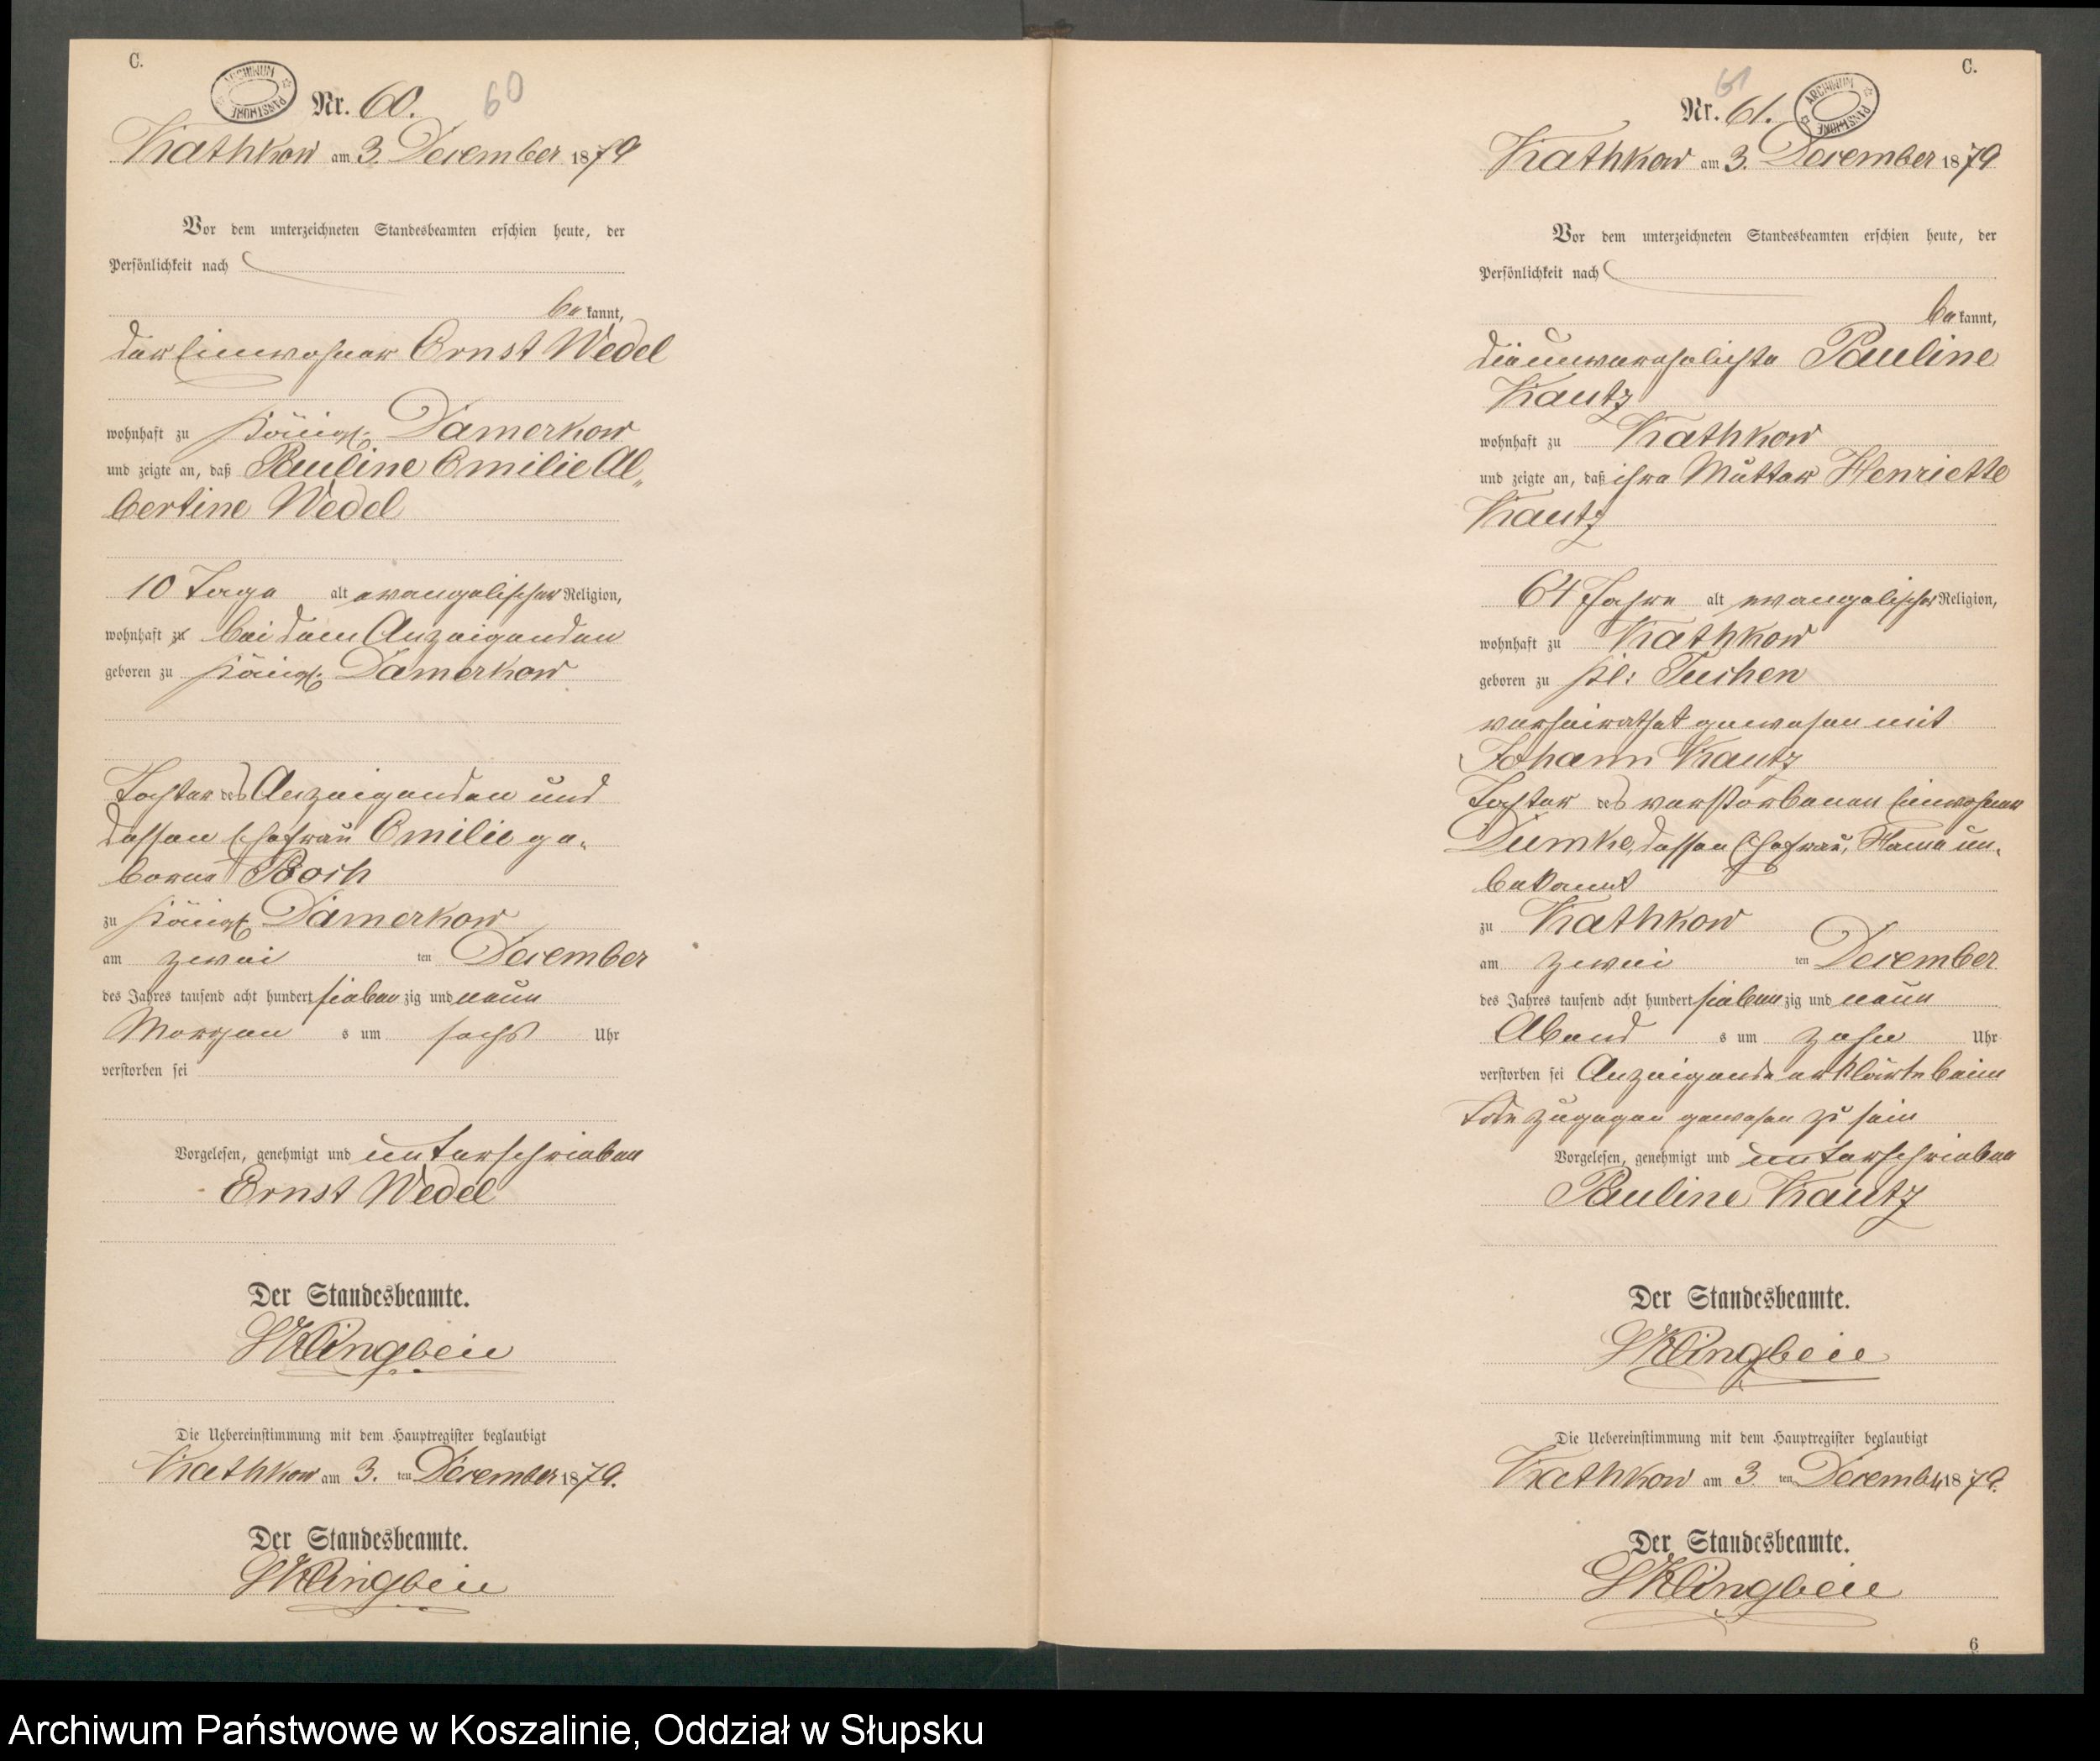 C.
ARCHIWUM PAŃSTWOWE
Nr. 60. 60
Kathkow am 3. December 1879
Vor dem unterzeichneten Standesbeamten erschien heute, der
Persönlichkeit nach
be kannt,
der Einwohner Ernst Wedel
wohnhaft zu Königl: Damerkow
und zeigte an, daß Pauline Emilie Al„
bertine Wedel
10 Tage alt evangelischer Religion,
wohnhaft zu bei dem Anzeigenden
geboren zu Königl: Damerkow
Tochter des Anzeigenden und
dessen Ehefrau Emilie ge„
borne Boch
zu Königl. Damerkow
am zwei ten December
des Jahres tausend acht hundert sieben zig und neun
Morgen s um sechs Uhr
verstorben sei
Vorgelesen, genehmigt und unterschrieben
Ernst Wedel
Der Standesbeamte.
Klingbeil
Die Uebereinstimmung mit dem Hauptregister beglaubigt
Kathkow am 3. ten December 1879.
Der Standesbeamte.
Klingbeil
C.
61
Nr. 61.
ARCHIWUM PAŃSTWOWE
Kathkow am 3. December 1879
Vor dem unterzeichneten Standesbeamten erschien heute, der
Persönlichkeit nach
be kannt,
die unverehelichte Pauline
Kautz
wohnhaft zu Kathkow
und zeigte an, daß ihre Mutter Henriette
Kautz
64 Jahre alt evangelischer Religion,
wohnhaft zu Kathkow
geboren zu Kl: Tuchen
verheirathet gewesen mit
Johann Kautz
Tochter des verstorbenen Einwohner
Dumke, dessen Ehefrau, Name un„
bekannt
zu Kathkow
am zwei ten December
des Jahres tausend acht hundert sieben zig und neun
Abend s um zehn Uhr
verstorben sei Anzeigende erklärte beim
Tode zugegen gewesen zu sein
Vorgelesen, genehmigt und unterschrieben
Pauline Kautz
Der Standesbeamte.
Klingbeil
Die Uebereinstimmung mit dem Hauptregister beglaubigt
Kathkow am 3 ten December 1879.
Der Standesbeamte.
Klingbeil
6
Archiwum Państwowe w Koszalinie, Oddział w Słupsku